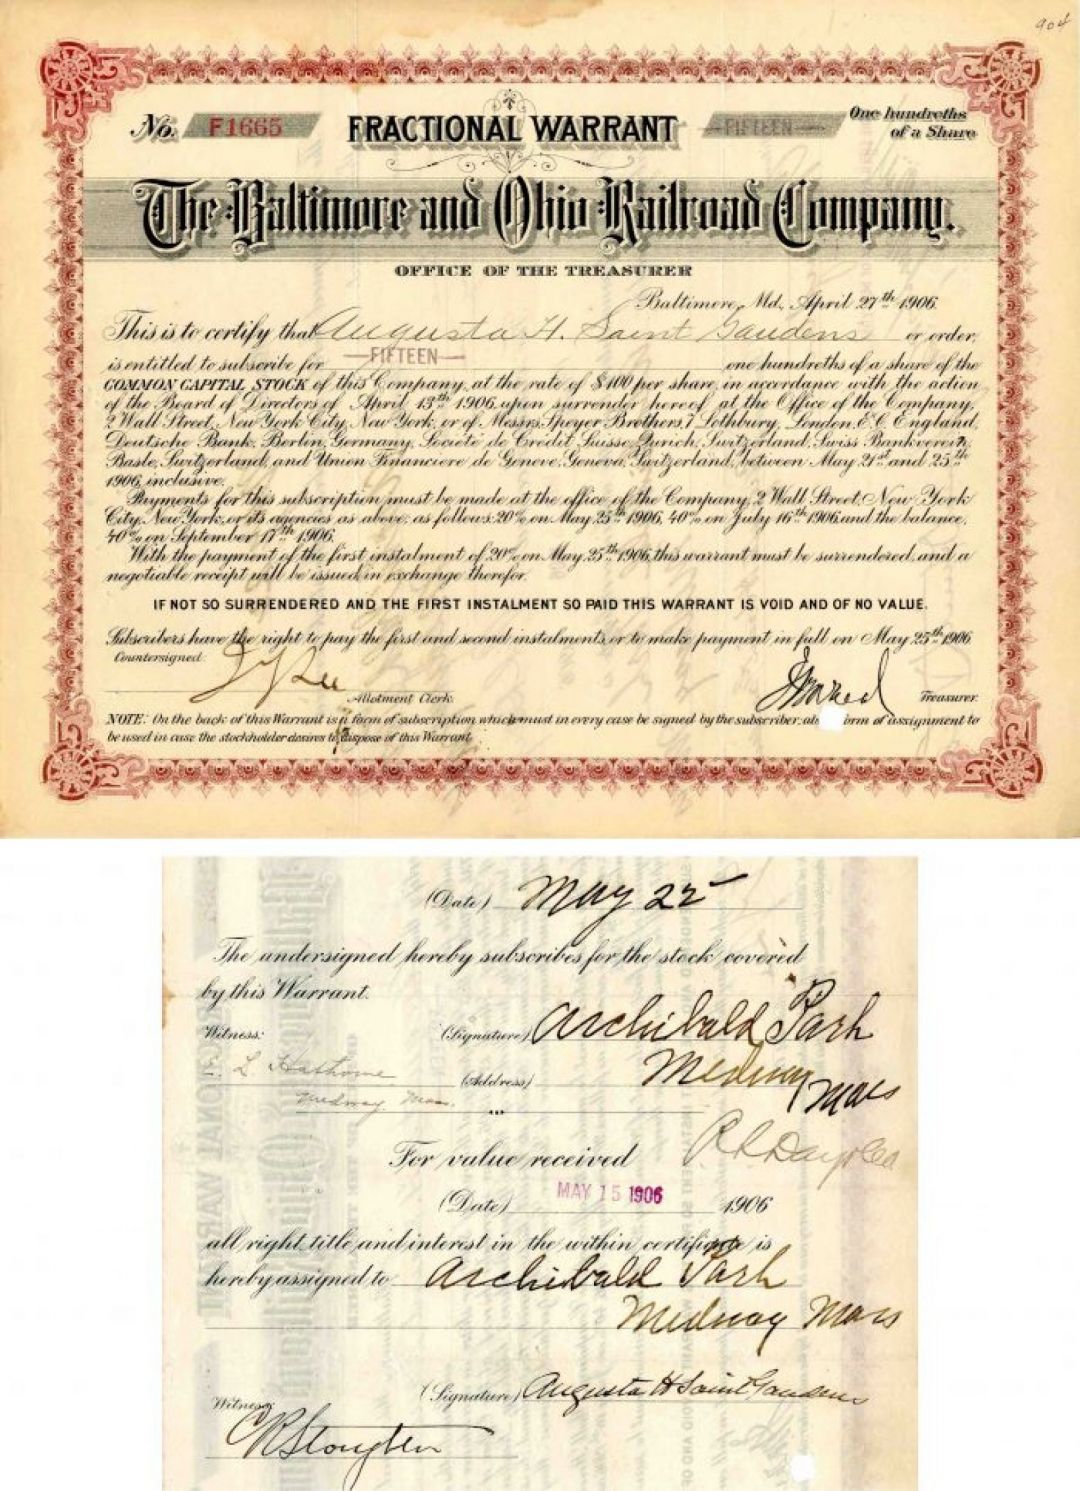 904
No. F1665 FRACTIONAL WARRANT FIFTEEN One hundreths of a Share
The Baltimore and Ohio Railroad Company.
OFFICE OF THE TREASURER
Baltimore, Md., April 27th 1906.
This is to certify that Augusta H. Saint Gaudens or order,
is entitled to subscribe for —FIFTEEN— one hundreths of a share of the
COMMON CAPITAL STOCK of this Company, at the rate of $100 per share, in accordance with the action
of the Board of Directors of April 13th 1906, upon surrender hereof, at the Office of the Company,
2 Wall Street, New York City, New York, or of Messrs. Speyer Brothers, 7 Lothbury, London, E.C. England,
Deutsche Bank, Berlin, Germany, Societe de Credit Suisse, Zurich, Switzerland, Swiss Bankverein,
Basle, Switzerland, and Union Financiere de Geneve, Geneva, Switzerland, between May 21st and 25th
1906, inclusive.
Payments for this subscription must be made at the office of the Company, 2 Wall Street, New York
City, New York, or its agencies as above, as follows: 20% on May 25th 1906, 40% on July 16th 1906 and the balance,
40% on September 17th 1906.
With the payment of the first instalment of 20% on May 25th 1906, this warrant must be surrendered, and a
negotiable receipt will be issued in exchange therefor.
IF NOT SO SURRENDERED AND THE FIRST INSTALMENT SO PAID THIS WARRANT IS VOID AND OF NO VALUE.
Subscribers have the right to pay the first and second instalments, or to make payment in full on May 25th 1906.
Countersigned
Allotment Clerk. Treasurer.
NOTE: On the back of this Warrant is a form of subscription which must in every case be signed by the subscriber: also form of assignment to
be used in case the stockholder desires to dispose of this Warrant.
(Date) May 22
The undersigned hereby subscribes for the stock covered
by this Warrant.
Witness: (Signature) Archibald Park
E. L. Hathorne (Address) Medway Mass
Medway Mass.
For value received
(Date) MAY 15 1906 1906
all right, title and interest in the within certificate is
hereby assigned to Archibald Park
Medway Mass
Witness: (Signature) Augusta H Saint Gaudens